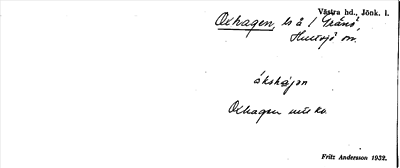 Västra hd., Jönk. l.
Oxhagen, ls å 1 Gränö,
Hultsjö sn.
åkshájən
Oxhagen
Fritz Andersson 1932.